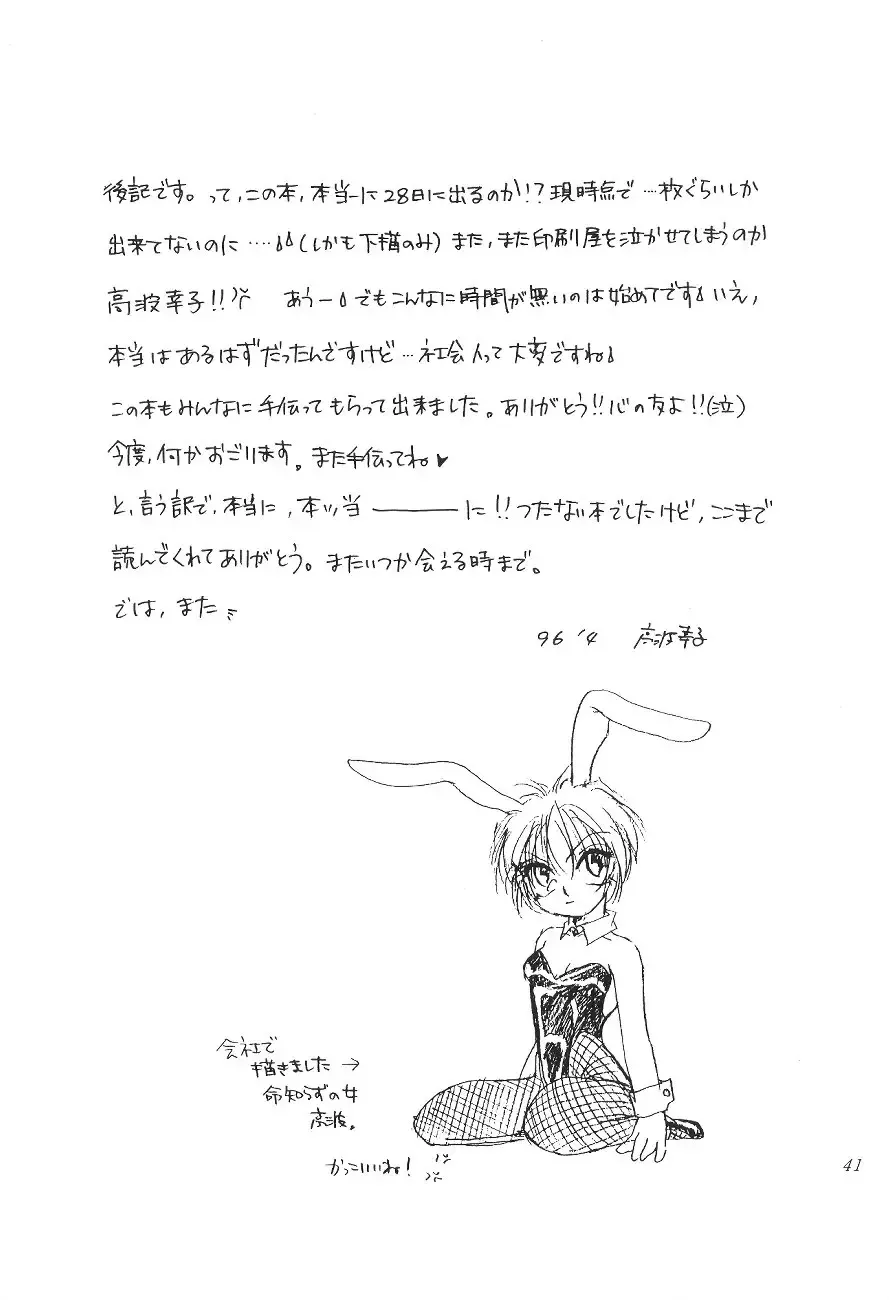 後記です。って,この本,本当ーに28日に出るのか!?現時点で…枚ぐらいしか
出来てないのに‥‥(しかも下描のみ)また,また印刷屋を泣かせてしまうのか
高波幸子!! あうー でもこんなに時間が無いのは始めてです いえ,
本当はあるはずだったんですけど…社会人って大変ですね
この本もみんなに手伝ってもらって出来ました。ありがとう!!心の友よ!!(泣)
今度,何かおごります。また手伝ってね♥
と,言う訳で,本当に,本ッ当――――に!!つたない本でしたけど,ここまで
読んでくれてありがとう。またいつか会える時まで。
では,また
96 '4 高波幸子
会社で
描きました→
命知らずの女
高波。
かっこいいね!
41